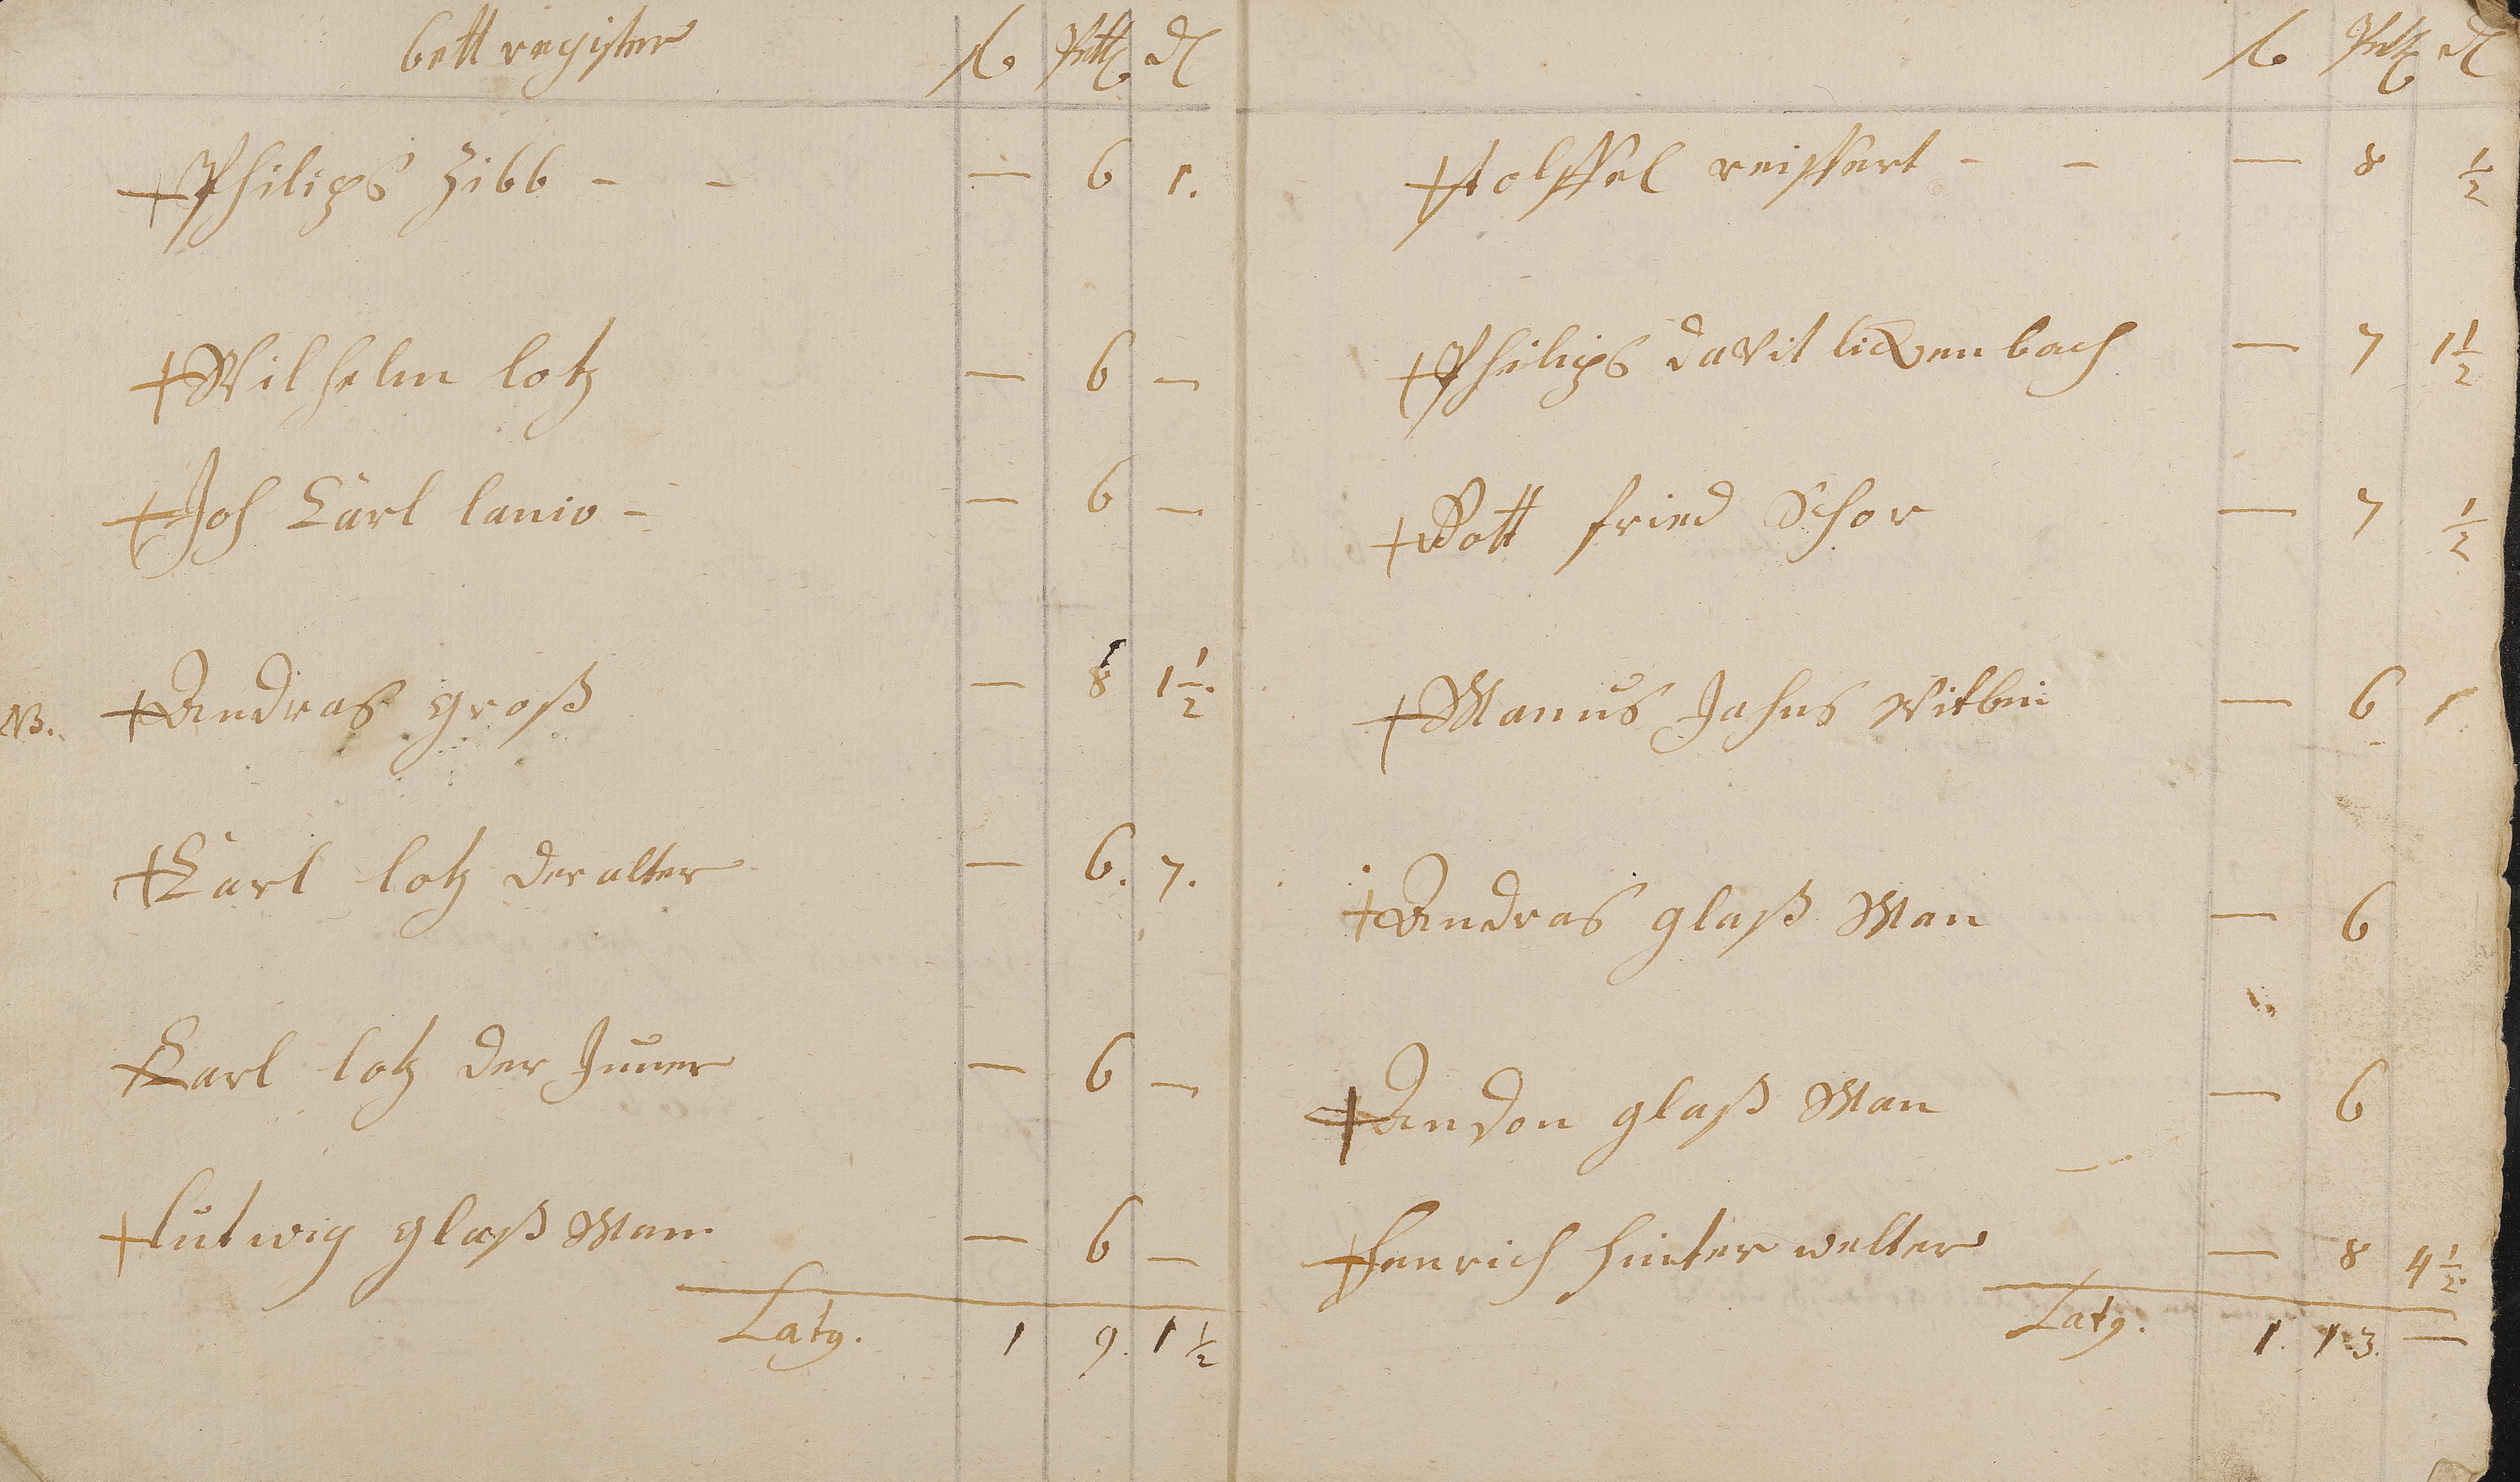 bett register fl btz d
+ Philips Zibb - - — 6 1.
+ Wilhelm lotz — 6 —
+ Joh Carl lanio - — 6 —
NB. + Andras groß — 8 1 1/2
+ Carl lotz der alter — 6. 7.
+ Carl lotz der Junner — 6 —
+ lutwig glaß Man — 6 —
Latg. 1 9. 1 1/2
fl btz d
+ stolffel reiffert - - — 8 1/2
+ Philips davit lickenbach — 7 1 1/2
+ Gott fried Schor — 7 1/2
+ Manus Jahns Witbin — 6 1
+ Andras glaß Man — 6
+ Andon glaß Man — 6
+ Henrich hinter welter — 8 4 1/2
Latg. 1. 13. —